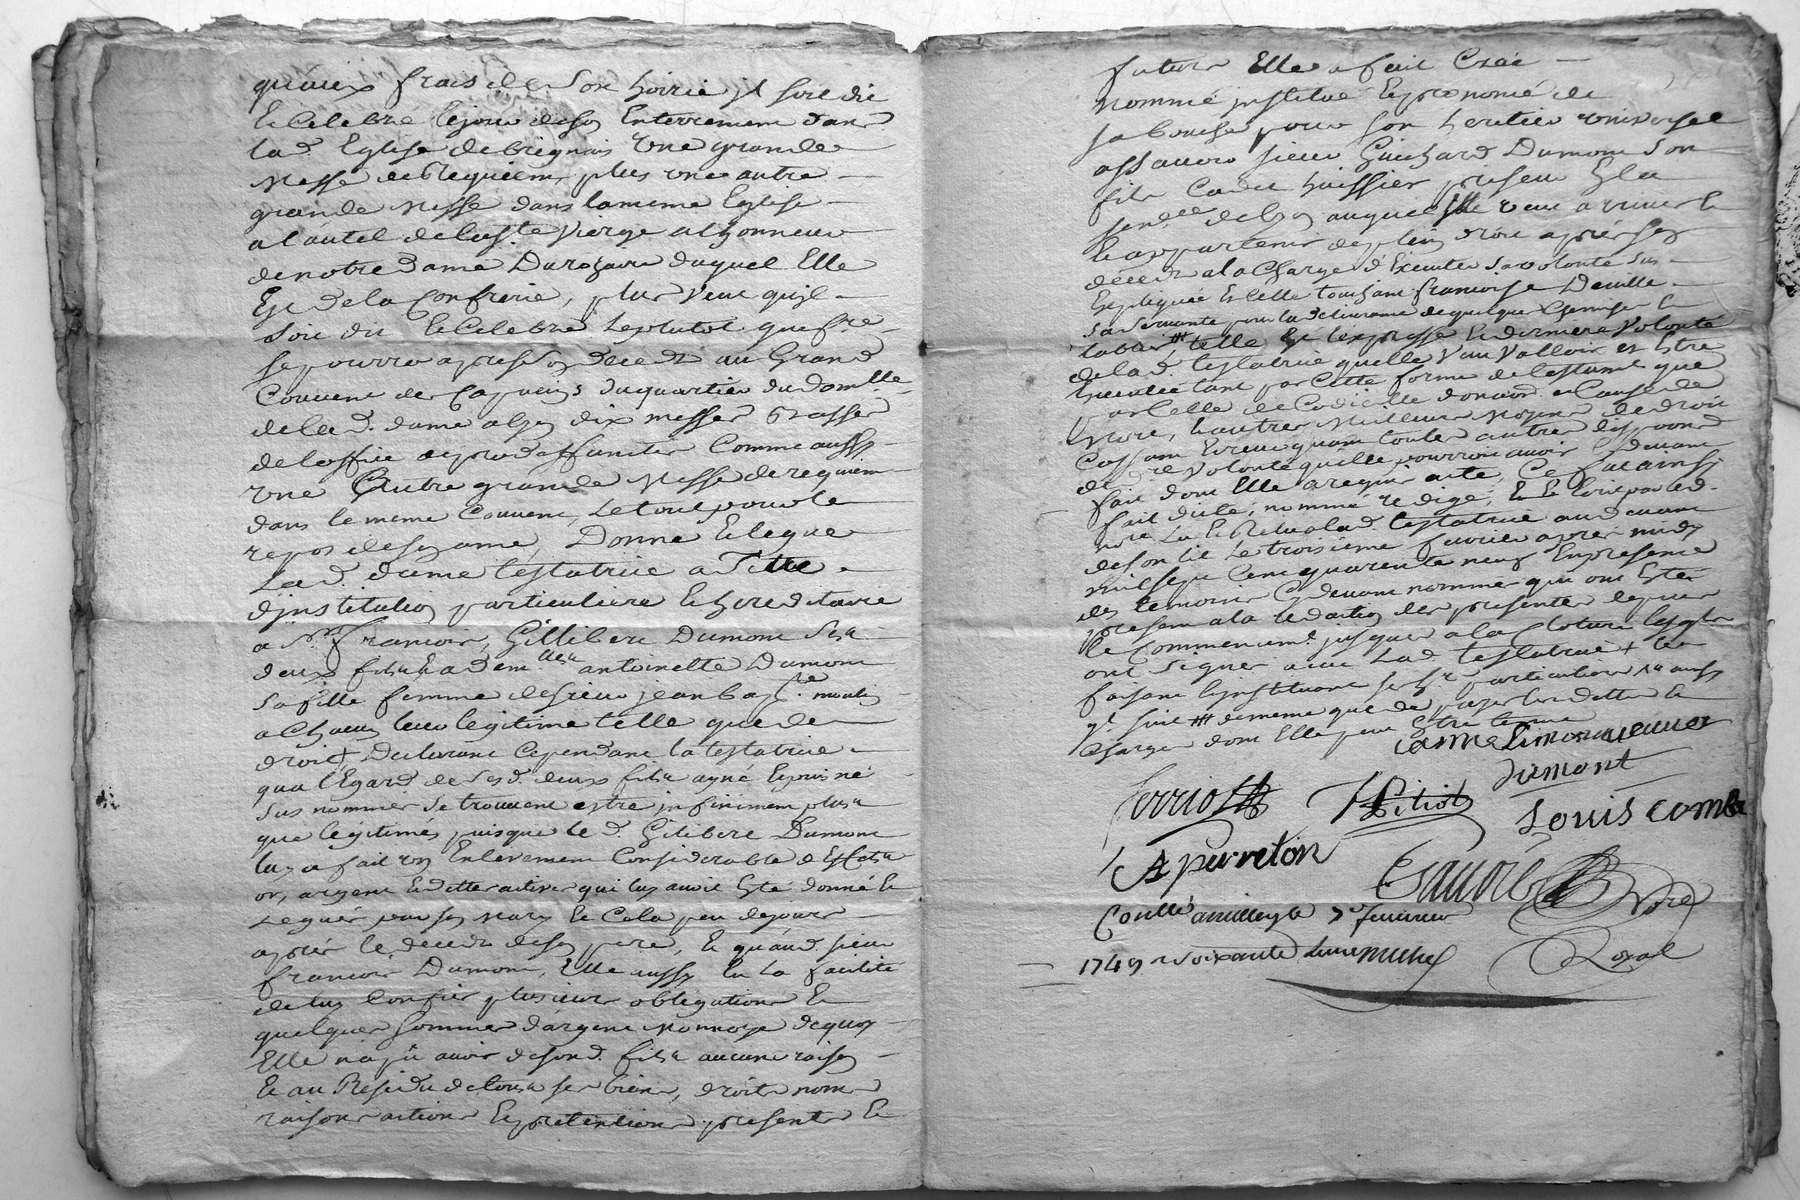 qu'aux frais de son hoirie il soit dit
Et Celebré le jour de son Enterrement dans
lad. Eglise de brignais Une grande
Messe de Requiem, plus une autre
grande Messe dans la meme Eglise
a l'autel de la ste Vierge a lhonneur
de notre dame Du rozaire duquel Elle
Est de la Confrerie, plus Veut quil
soit dit Et Celebré le plutot que fre
se pourra apres son deced au Grand
Couvent des Capucins du quartier du
de lad. dame a lyon dix messes basses
de loffice de pro deffunctis Comme aussy
une Autre grande Messe de requiem
dans le meme Couvent, Le tout pour le
repos de son ame, Donne Et legue
Lad. dame testatrice a Titre
d'institution particuliere Et hereditaire
a Sr. francois, Gillibert Dumont Ses
deux fils Et a demlles antoinette Dumont
sa fille femme de sieur jean bapte. moulin
a Chacun leur legitime telle que de
droit Declarant Cependant la testatrice
qua l'Egard de Sesd. deux fils ayné Et puisné
sus nommes se trouvent estre infiniment plus
que legitimés puisque le d. Gilibert Dumont
luy a fait un Enlevement Considerable d'Effets
or, argent Et dettes actives qui luy avoit Esté donné Et
Legués par son Mary Et Cela peu de jours
aprés le deced de son pere, Et quand sieur
francois Dumont, Elle aussy Eu La facilité
de luy Confier plusieurs obligations Et
quelques sommes d'argent Monnoye de quoy
Elle n'a pû avoir de sond. fils aucune raison
Et au Residu de tous ses biens, droits noms
raisons actions Et pretentions presents Et
futurs Elle a fait Créé
nommé institué Et prononcé de
sa bouche pour son heritier universel
assavoir sieur Guichard Dumont son
fils Cadet huissier
sendée de lyon auquel Elle veut arriver Et
appartenir de plein droit aprés son
déced a la Charge d'Executer sa volonté sus
Expliquée Et Celle touchant francoise Deville
sa servante pour la delivrance de quelque Chemises Et
tablier telle Est lexpresse Et derniere Volonté
de lad. testatrice quelle Veut Valloir Et Estre
Executée tant par Cette forme de testament que
par Celle de Codicille donation a Cause de
Mort, Et autres Meilleurs Moyens de droit
Cassant Et revoquant toutes autres dispositions
de dre Volonté quelle pourroit avoir Cydevant
fait dont Elle a requis acte, Ce fut ainsy
fait dicté, nommé redigé, Et Ecrit par led.
nore Lu Et Relu a lad. testatrice audevant
de son lit Le troisieme fevrier apres midy
mil sept Cent quarente neuf En presence
des temoins Cydevant nommés qui ont Esté
present a la redaction des presentes depuis
le Commencemt. jusques a la Cloture lesqls
ont signer avec Lad testatrice
faisant linstituant
de meme que de payer les dettes Et
Charges dont Elle peut Estre tenue
anne Limon veuve
Dumont
Pitiot
Louis comba
A perreton
Nore
Royal
Conllé a le 7e fevrier
1749 r soixante